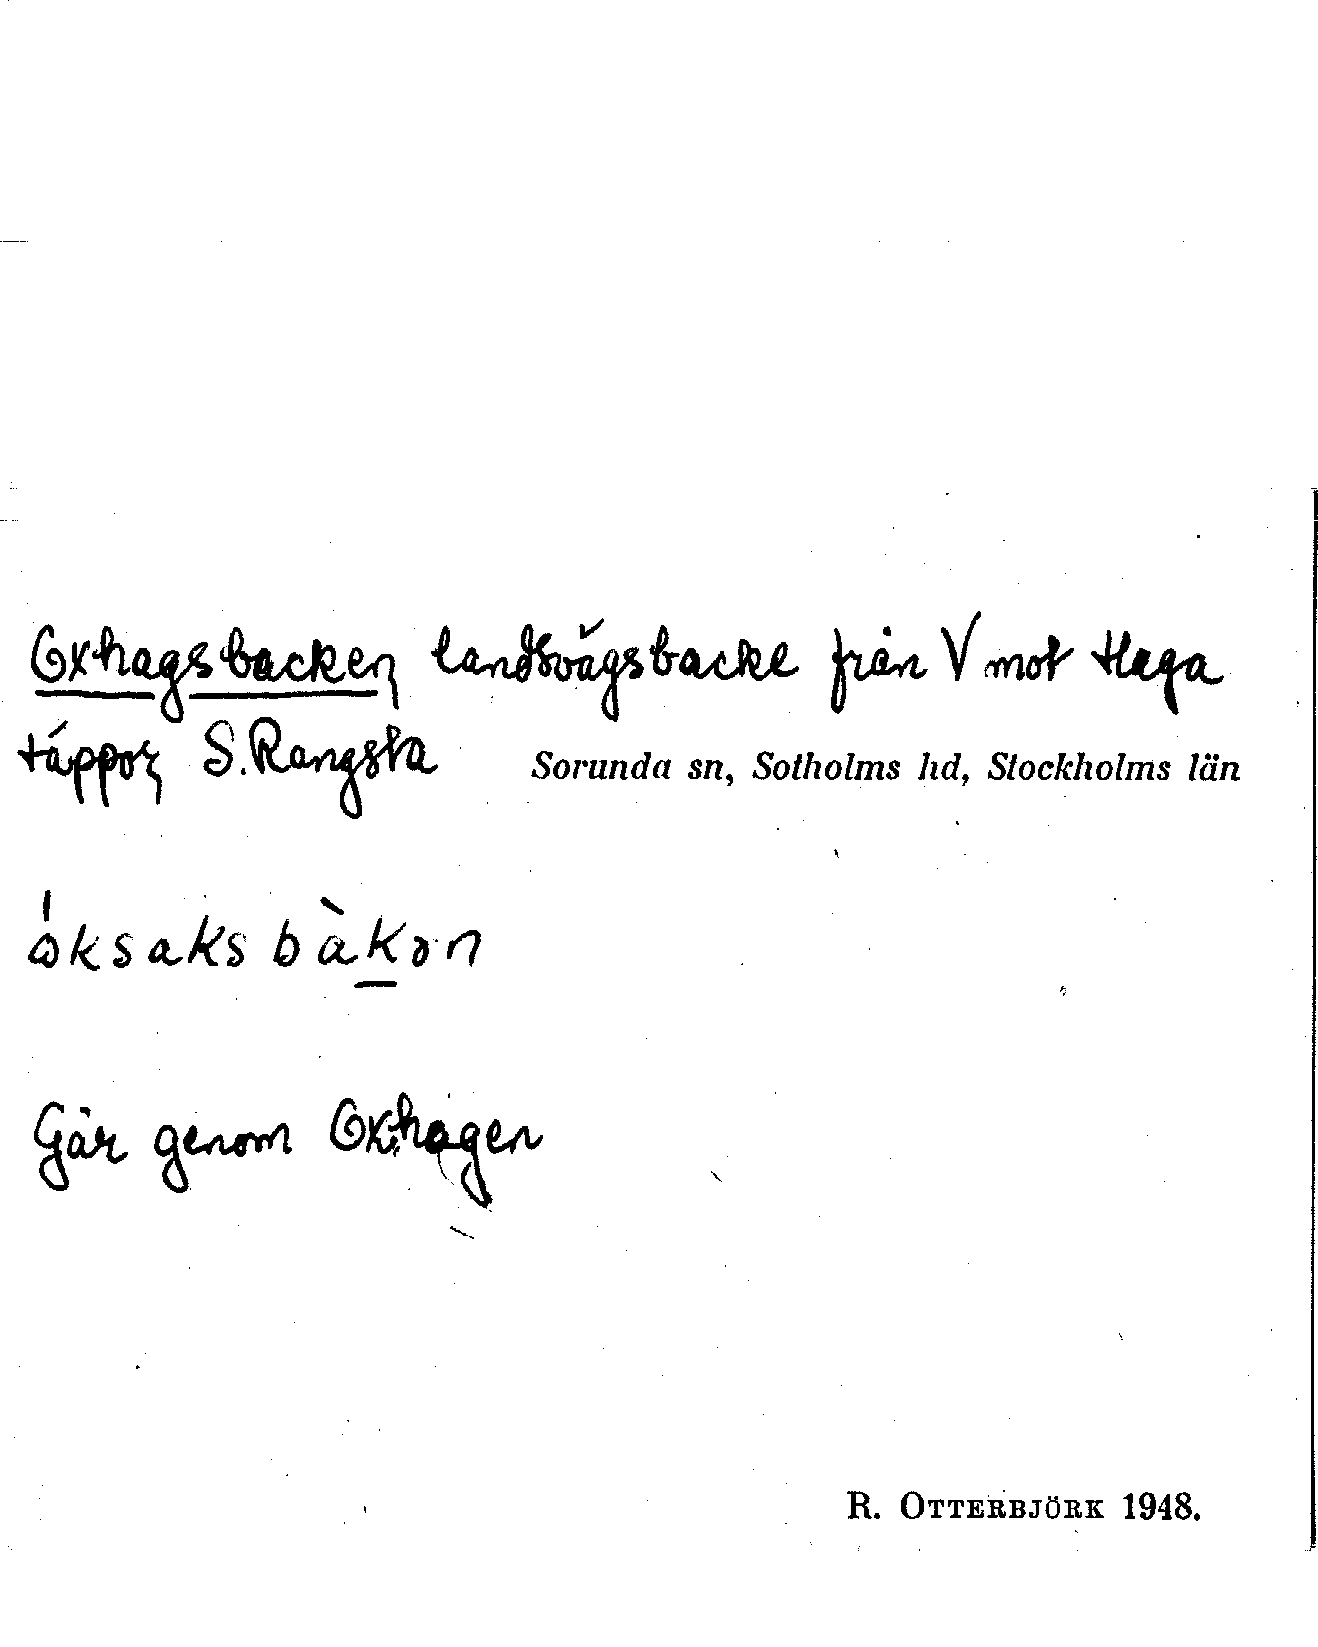 Oxhagsbacken, landsvägsbacke från V mot Haga
täppor, S. Rangsta Sorunda sn, Sotholms hd, Stockholms län
óksaksbàkən
Går genom Oxhagen
R. OTTERBJÖRK 1948.